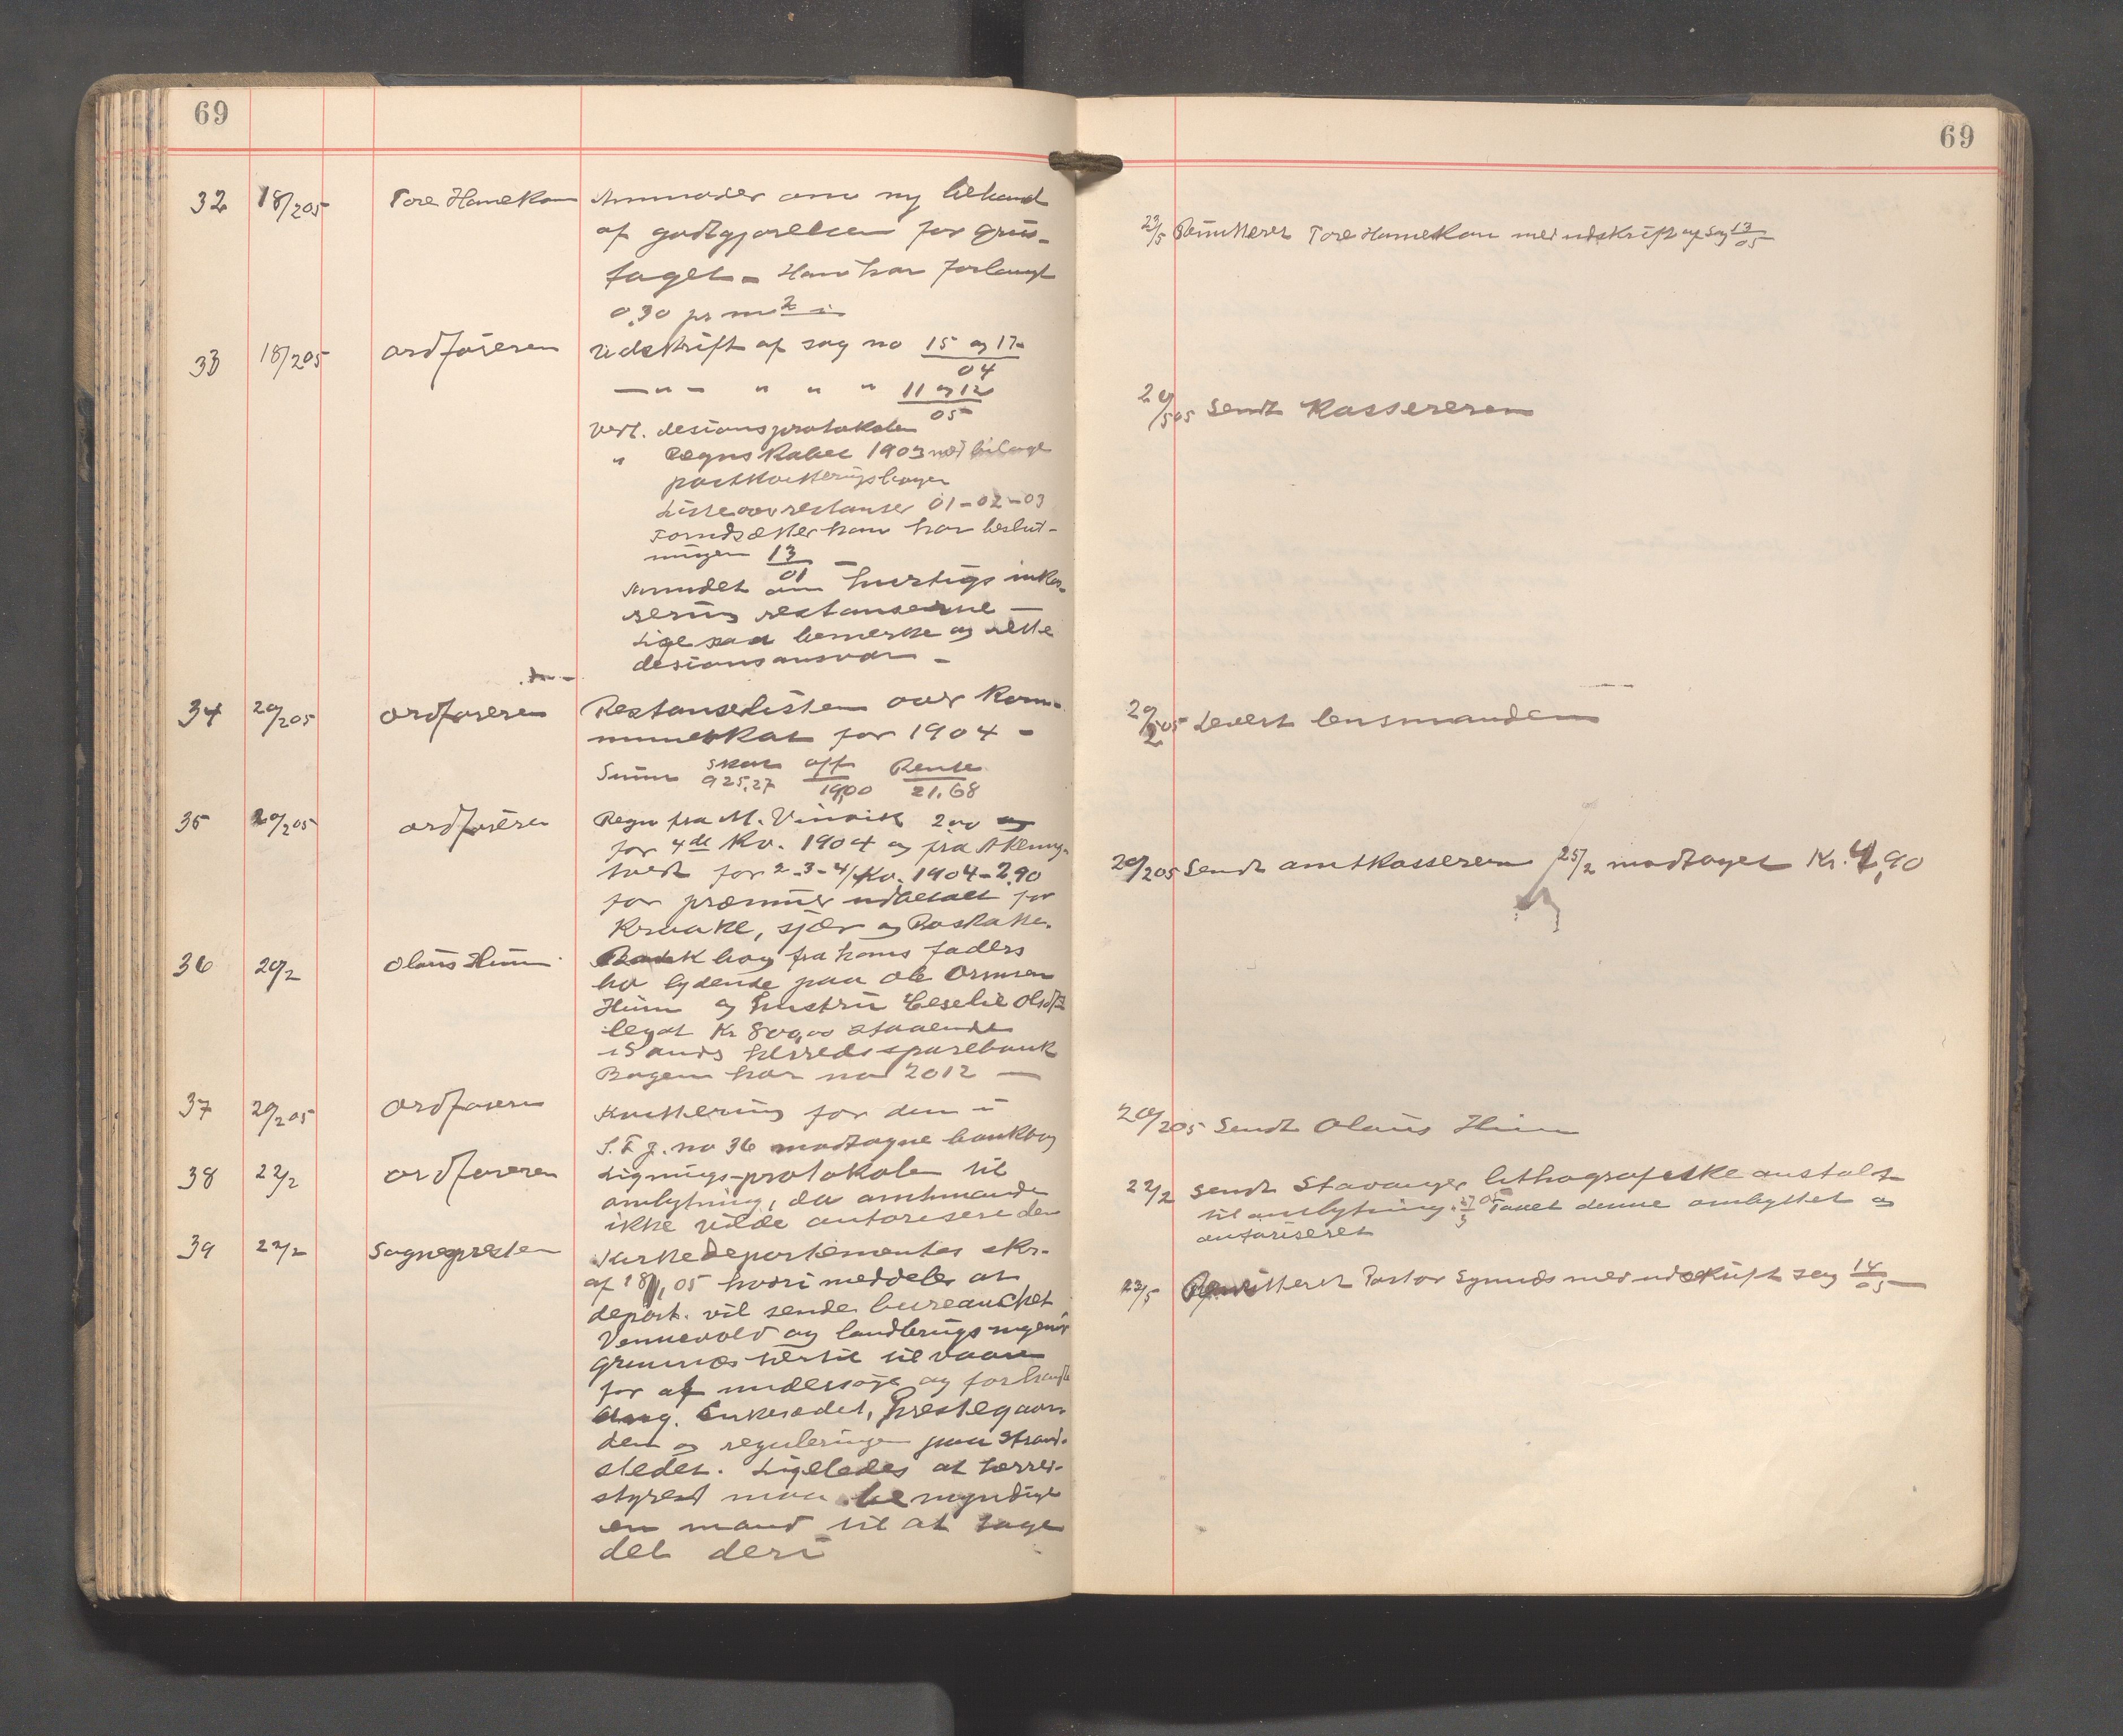 69
32 18/2 05 Tore Hamekam Anmoder om ny behand
af godtgjørelsen for grus-
taget - Han har forlangt
0,30 pr m2
33 18/2 05 ordføreren Udskrift af sag no 15 og 17
04
— " — " " " 11 og 12
05
Vedl. desionsprotokolen
" Regnskabet 1903 med bilage
postkvitteringsbogen
Liste over restanser 01-02-03
han har beslut-
ningen 13
01
Anmodet om hurtigs inkas-
sering restanserne —
Ligesaa bemerke og rette
desionsansvar -
34 20/2 05 ordføreren Restanselisten over kom-
muneskat for 1904 -
Sum skat 925,27 off 19,00 Rente 21,68
35 20/2 05 ordføreren Regn fra M. Vinvik 2,00 og
for 4de Kv. 1904 og fra
tvedt for 2-3-4/Kv. 1904 - 2,90
for præmier udbetalt for
Kraake, og Røskatte.
36 20/2 Olaus Hiim Bankbog fra hans faders
bo lydende paa Ole Ormsen
Hiim og hustru Ceselie Olsdtr
legat Kr 800,00 staaende
i Sands herreds sparebank
Bogen har no 2012 —
37 20/2 05 Ordføreren Kvittering for den i
S. F. J. no 36 modtagne bankbog
38 22/2 ordføreren Ligningsprotokolen til
ombytning, da amtmanden
ikke vilde autorisere den
39 22/2 Sognepresten Kirkedepartementes skr.
af 18/1 05 hvori meddeler at
depart. vil sende bureauchef
Vennevold og landbrugsingeniør
Grimnes hertil til vaaren
for at undersøge og forhandle
ang. Enkesædet, Prestegaar-
den og reguleringen paa Strand-
stedet. Ligeledes at herred-
styret maa bemyndige
en mand til at tage
del deri
69
23/5 Remitteret Tore Hamekam med udskrift af sag 13
05
20/5 05 Sendt Kassereren
20/2 05 Levert lensmanden
20/2 05 Sendt amtkassereren 25/2 modtaget Kr. 4,90
20/2 05 Sendt Olaus Hiim
22/2 Sendt Stavanger lithografiske anstalt
til ombytning. denne ombyttet og
autoriseret
23/5 Remitteret Pastor med udskrift sag 14
05